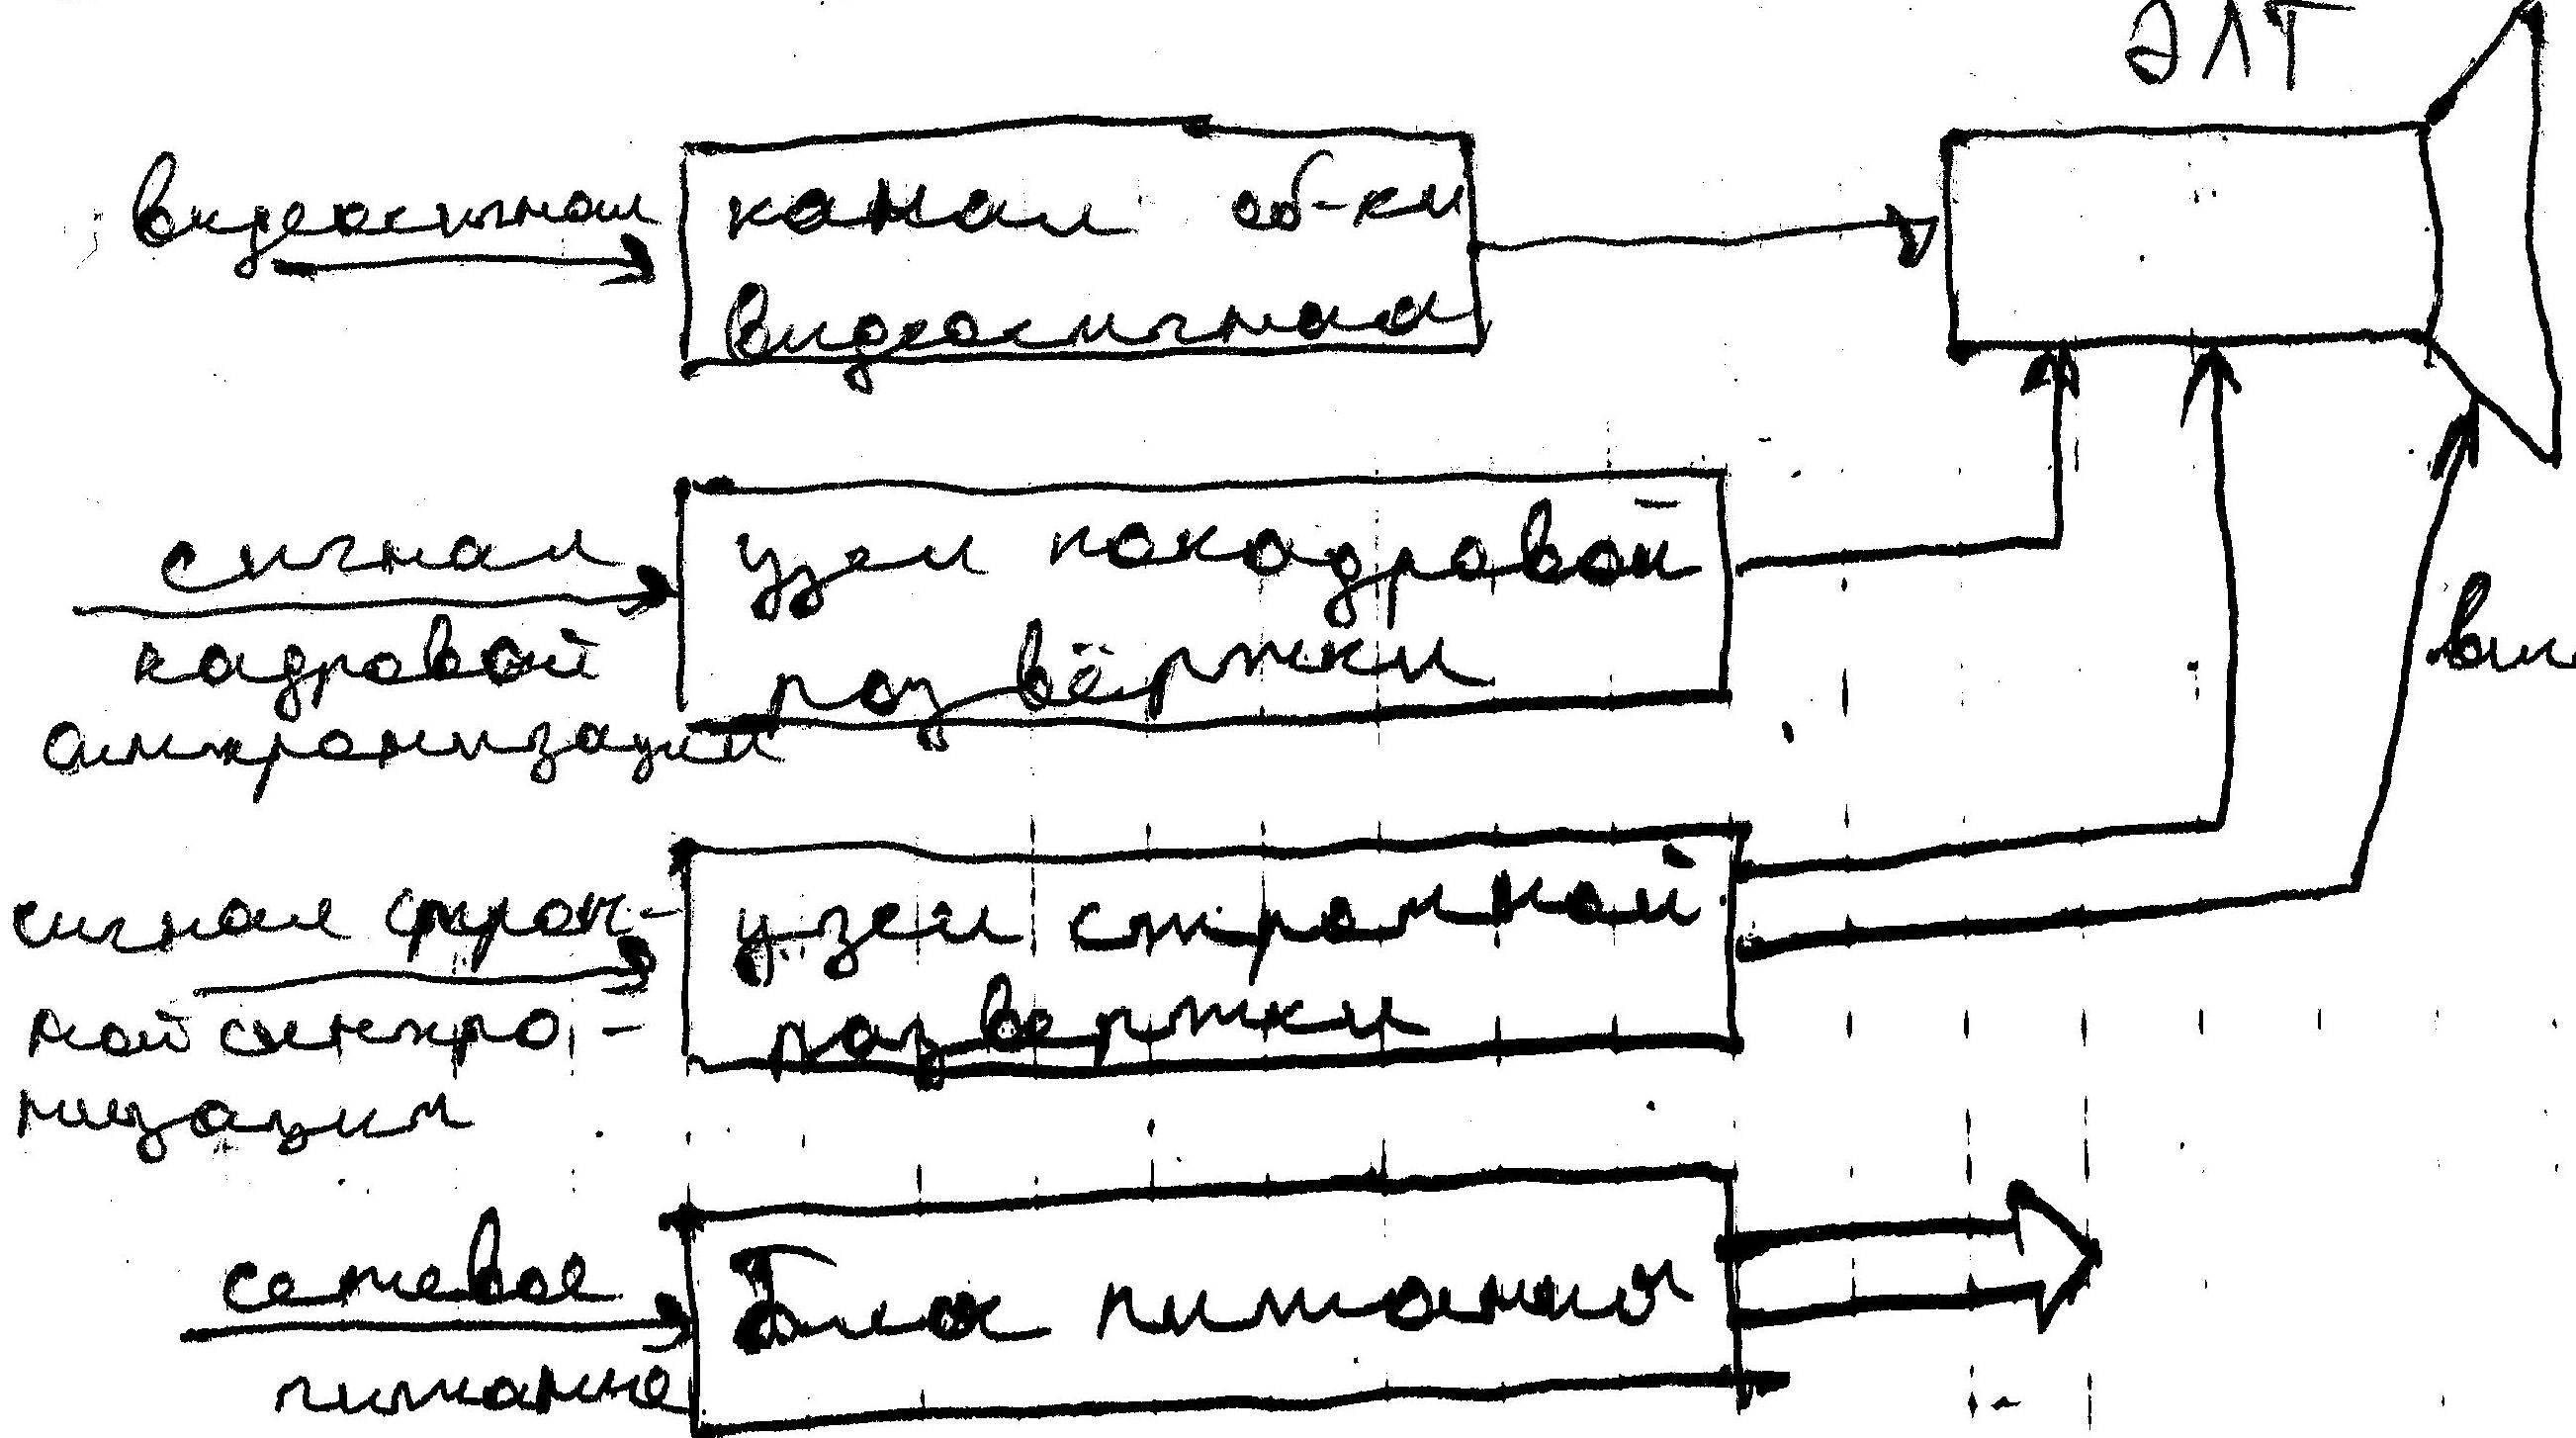 ЭЛТ
видеосигнал
канал об-ки
видеосигнала
сигнал
кадровой
синхронизации
узел покадровой
развёртки
сигнал строч-
ной синхро-
низации
узел строчной
развертки
сетевое
питание
Блок питания